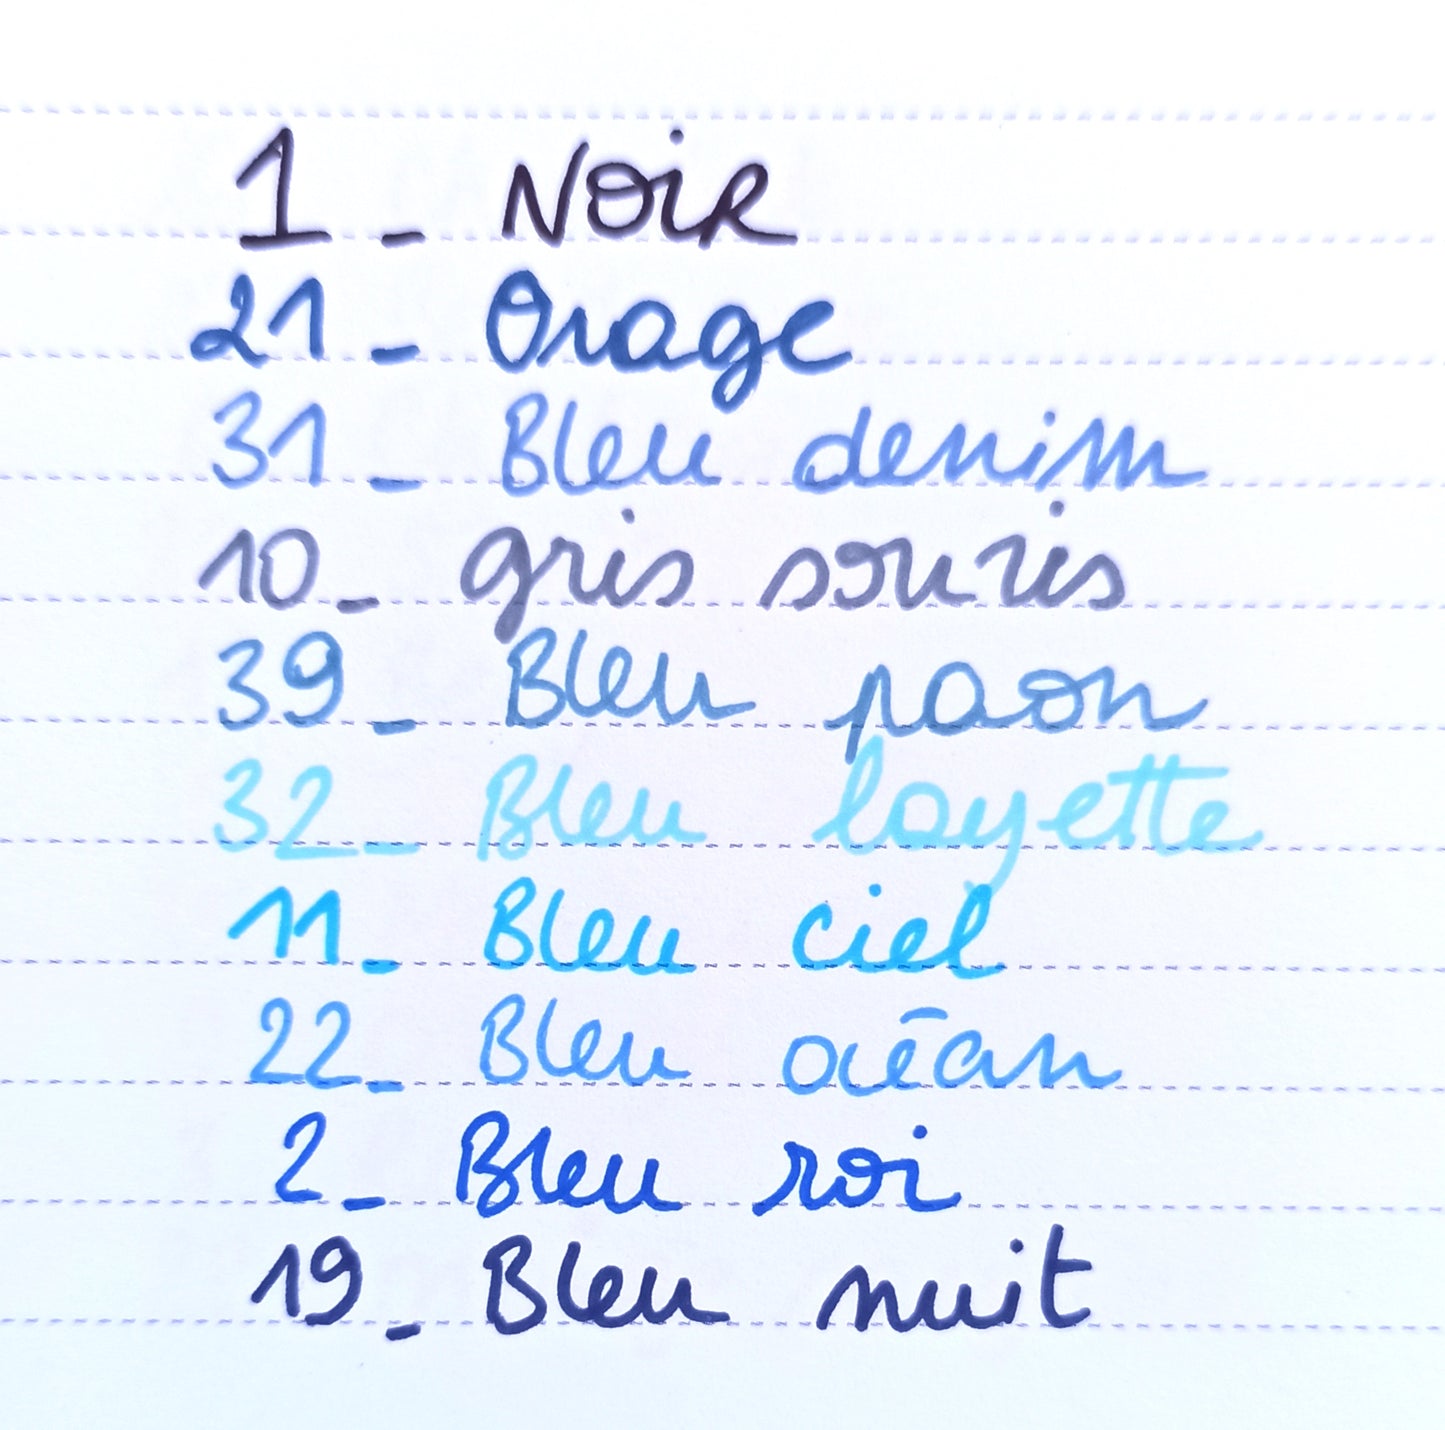 1 - NOIR
21 - Orage
31 - Bleu denim
10 - gris souris
39 - Bleu paon
32 - Bleu layette
11 - Bleu ciel
22 - Bleu océan
2 - Bleu roi
19 - Bleu nuit